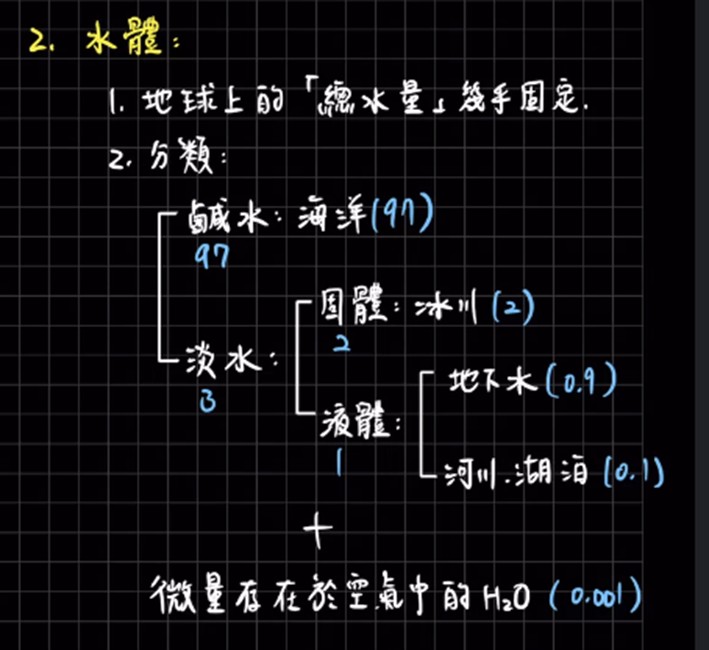 2. 水體：
1. 地球上的「總水量」幾乎固定.
2. 分類：
鹹水：海洋(97)
97
固體：冰川(2)
2
淡水：
3
地下水(0.9)
液體：
1
河川.湖泊(0.1)
+
微量存在於空氣中的H₂O (0.001)